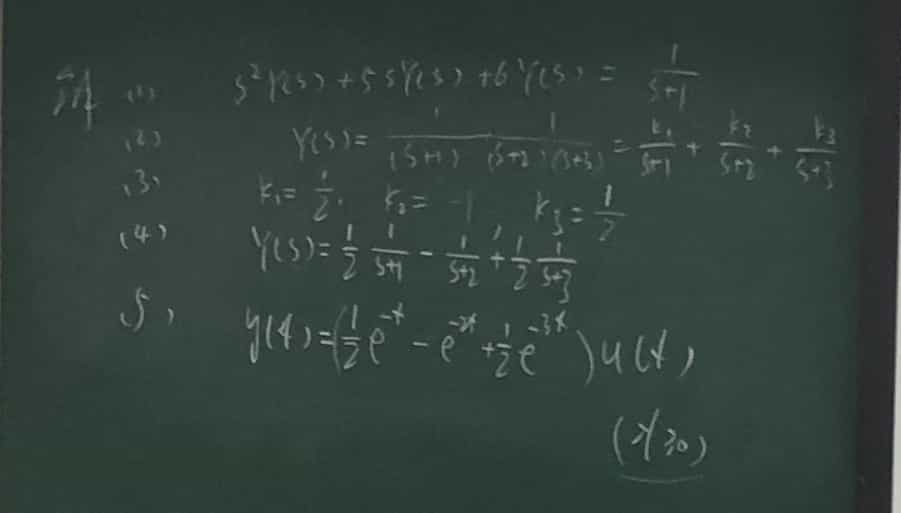 解 (1) s²Y(s)+5sY(s)+6Y(s)= 1/(s+1)
(2) Y(s)= 1/(s+1) 1/((s+2)(s+3)) = k₁/(s+1) + k₂/(s+2) + k₃/(s+3)
(3) k₁= 1/2, k₂= -1, k₃= 1/2
(4) Y(s)= 1/2 1/(s+1) - 1/(s+2) + 1/2 1/(s+3)
5, y(t)=(1/2 e^{-t} - e^{-2t} + 1/2 e^{-3t})u(t)
(t≥0)